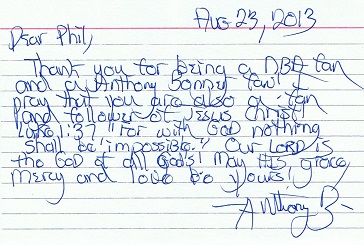 Aug 23, 2013
Dear Phil,
Thank you for being a NBA fan
and a Anthony Bonner fan! I
pray that you are also a fan
and follower of Jesus Christ
Luke 1:37 "For with God nothing
shall be impossible." Our LORD is
the GOD of all Gods! May His grace,
mercy and love be yours!
Anthony B